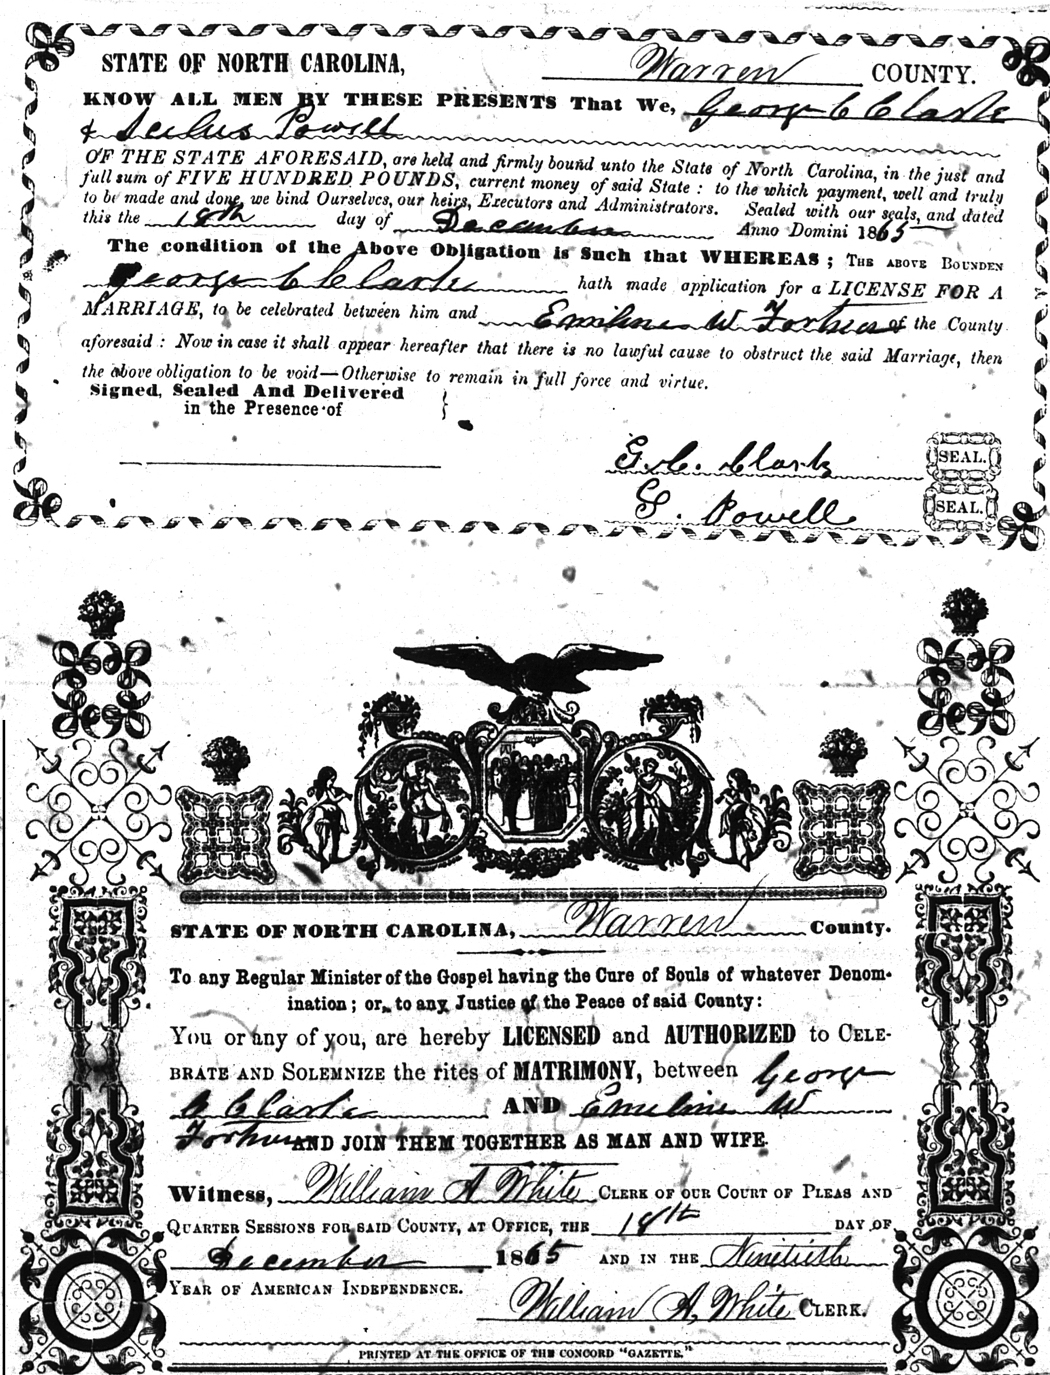 STATE OF NORTH CAROLINA, Warren COUNTY.
KNOW ALL MEN BY THESE PRESENTS That We, George C Clarke
& Powell
OF THE STATE AFORESAID, are held and firmly bound unto the State of North Carolina, in the just and
full sum of FIVE HUNDRED POUNDS, current money of said State : to the which payment, well and truly
to be made and done, we bind Ourselves, our heirs, Executors and Administrators. Sealed with our seals, and dated
this the 18th day of December Anno Domini 1865
The condition of the Above Obligation is Such that WHEREAS ; THE ABOVE BOUNDEN
George C Clarke hath made application for a LICENSE FOR A
MARRIAGE, to be celebrated between him and Emiline W of the County
aforesaid : Now in case it shall appear hereafter that there is no lawful cause to obstruct the said Marriage, then
the above obligation to be void—Otherwise to remain in full force and virtue.
Signed, Sealed And Delivered
in the Presence of }
G. C. Clark SEAL.
S. Powell SEAL.
STATE OF NORTH CAROLINA, Warren County.
To any Regular Minister of the Gospel having the Cure of Souls of whatever Denom-
ination ; or, to any Justice of the Peace of said County :
You or any of you, are hereby LICENSED and AUTHORIZED to CELE-
BRATE AND SOLEMNIZE the rites of MATRIMONY, between George
Clarke AND Emeline W
AND JOIN THEM TOGETHER AS MAN AND WIFE.
Witness, William A White CLERK OF OUR COURT OF PLEAS AND
QUARTER SESSIONS FOR SAID COUNTY, AT OFFICE, THE 18th DAY OF
December 1865 AND IN THE Ninetieth
YEAR OF AMERICAN INDEPENDENCE.
William A. White CLERK.
PRINTED AT THE OFFICE OF THE CONCORD "GAZETTE."